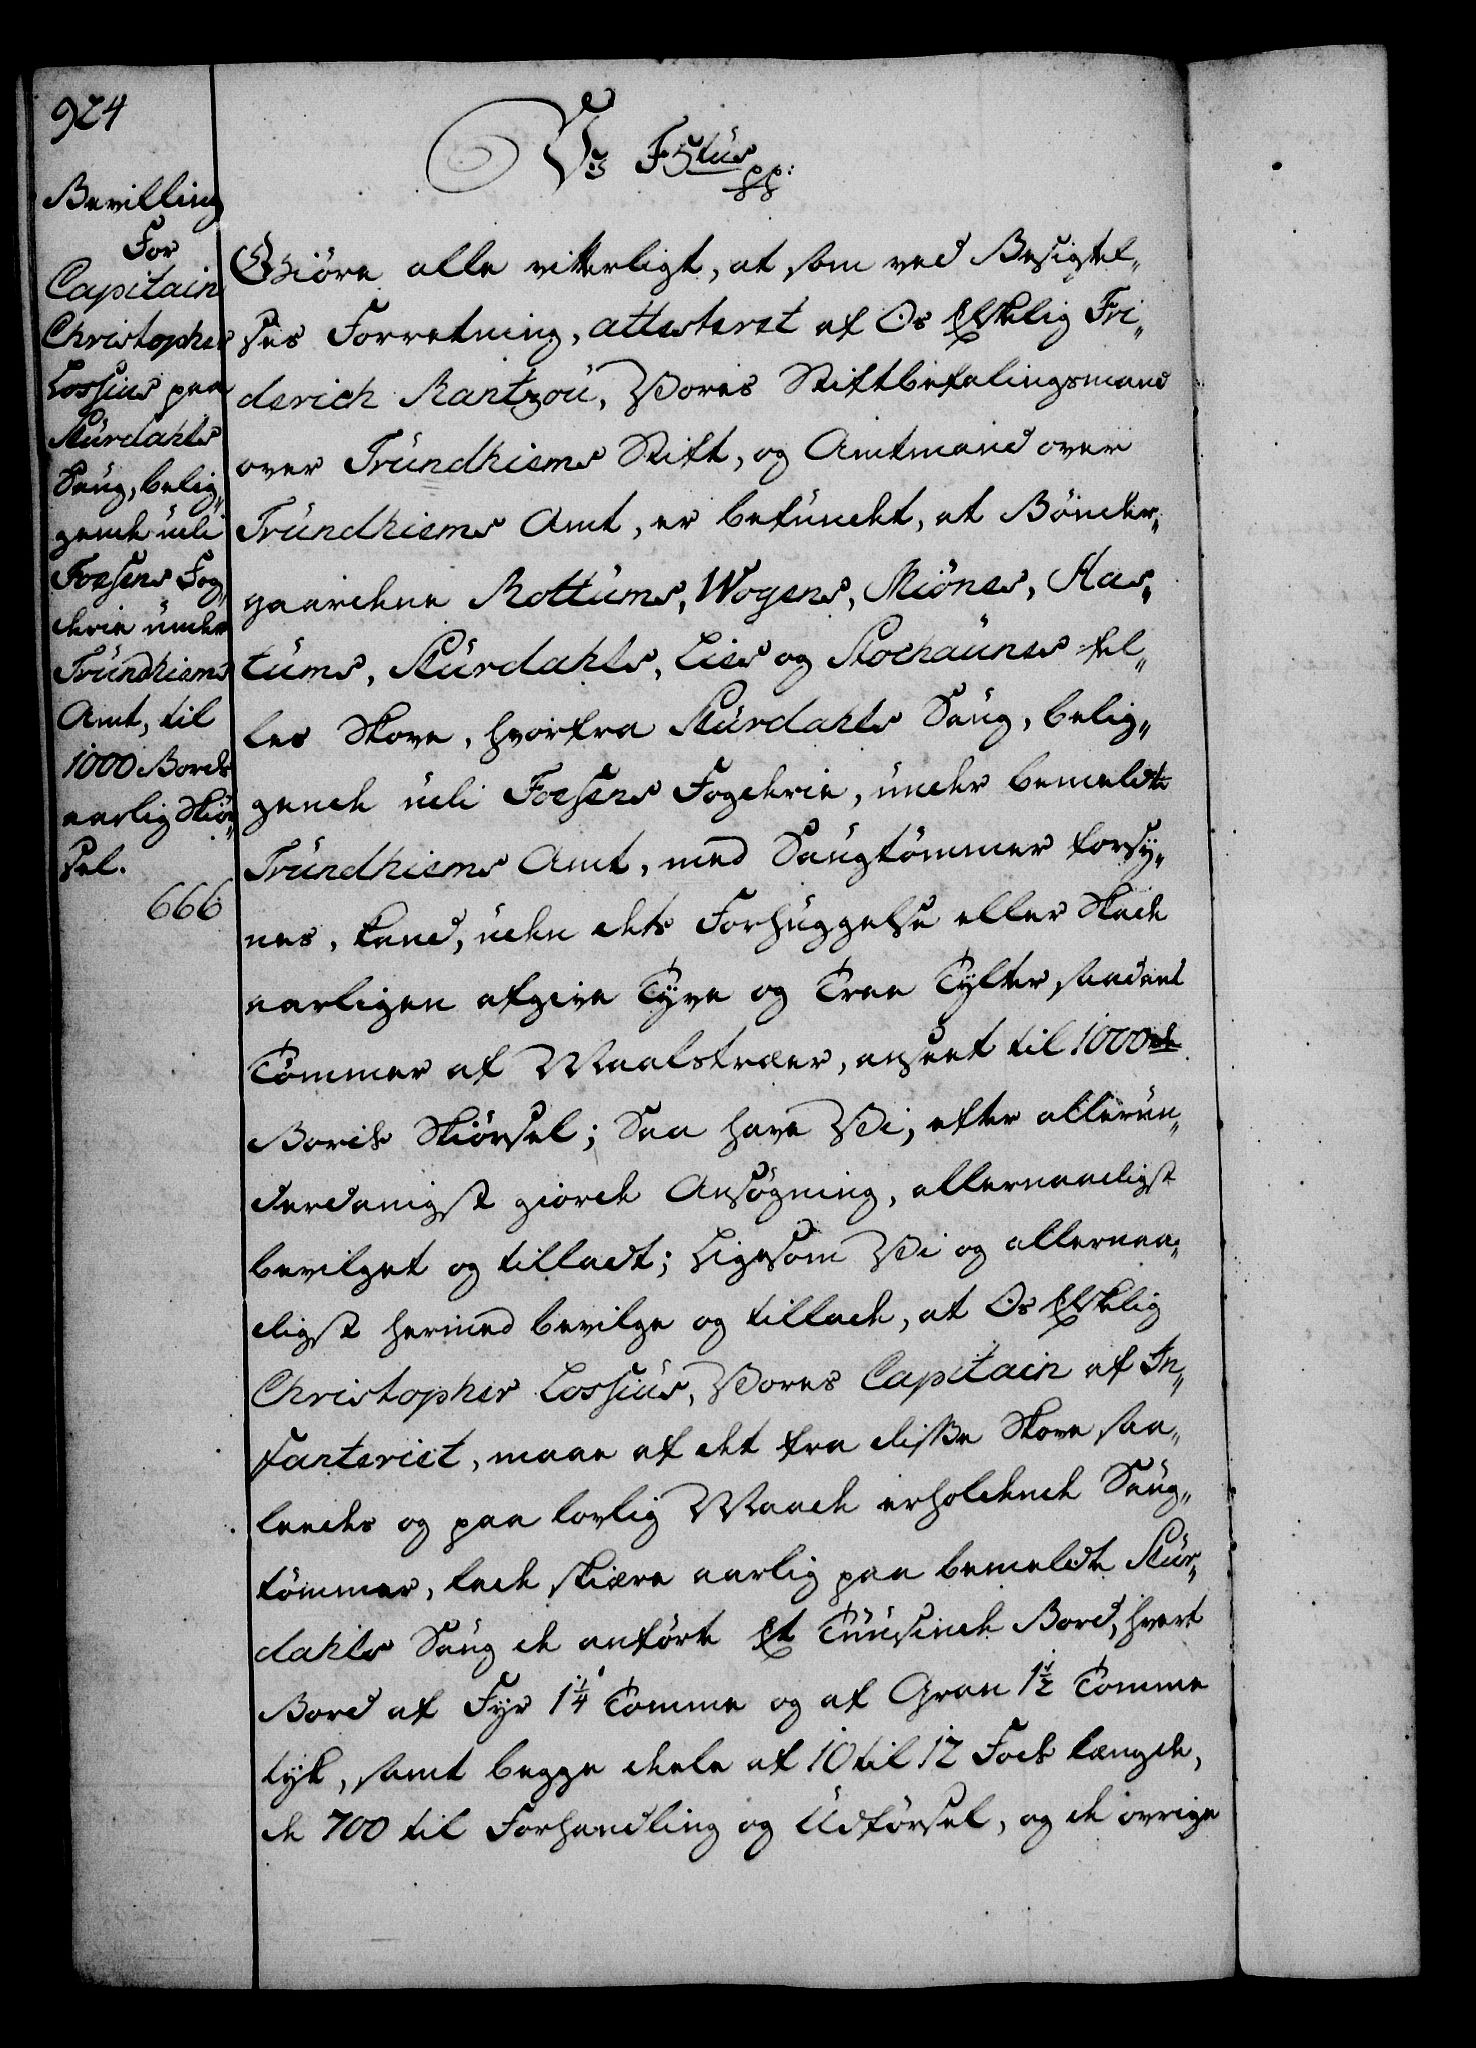 924
Bevilling
For
Capitain
Christopher
Lossius paa
Skürdahls
Saug, belig„
gende udi
Foesens Fog„
derie under
Tründhiems
Amt, til
1000 Bords
aarlig Skiör„
sel.
666
Vi F 5tus pp:
Giöre alle vitterligt, at som ved Besigtel„
ses Forretning, attesteret af Os Elskelig Fri„
derich Rantzou, Vores Stiftbefalingsmand
over Tründhiems Stift, og Amtmand over
Tründhiems Amt, er befundet, at Bönder„
gaardene Rottums, Wogens, Miönes, Has„
tums, Skürdahls, Lies og Stochaunes fel„
les Skove, hvorfra Skürdahls Saug, belig„
gende udi Foesens Fogderie, under bemeldte
Tründhiems Amt, med Saugtömmer forsy„
nes, kand, uden dets Forhuggelse eller Skade
aarligen afgive Tyve og Tree Tylter saadant
Tömmer af Maalstræer, anseet til 1000de
Bords Skiörsel; Saa have Vi, efter allerun„
derdanigst giorde Ansøgning, allernaadigst
bevilget og tilladt; Ligesom Vi og allernaa„
digst hermed bevilge og tillade, at Os Elskelig
Christopher Lossius, Vores Capitain af In„
fanteriet, maae af det fra disse Skove saa„
ledes og paa lovlig Maade erholdende Saug„
tömmer, lade skiære aarlig paa bemeldte Skür„
dahls Saug de anförte Et Tuusinde Bord, hvert
Bord af Fyr 1 1/4 Tomme og af Gran 1 1/2 Tomme
tyk, samt begge deele af 10 til 12 Fods længde,
de 700 til Forhandling og Udförsel, og de øvrige